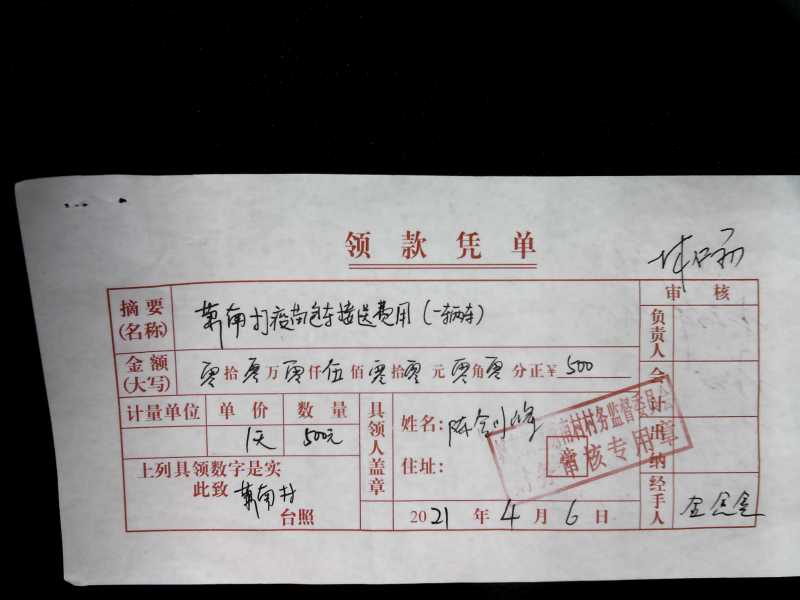 领款凭单
审核
摘要(名称) 南村疫苗包车接送费用(一辆车)
负责人
金额(大写) 零拾零万零仟伍佰零拾零元零角零分正¥500
会计
计量单位 单价 数量
1天 500元
具领人盖章
姓名: 陈金
住址:
南村村务监督委员会
审核专用章
出纳
上列具领数字是实
此致 南村
台照
2021年4月6日
经手人 金